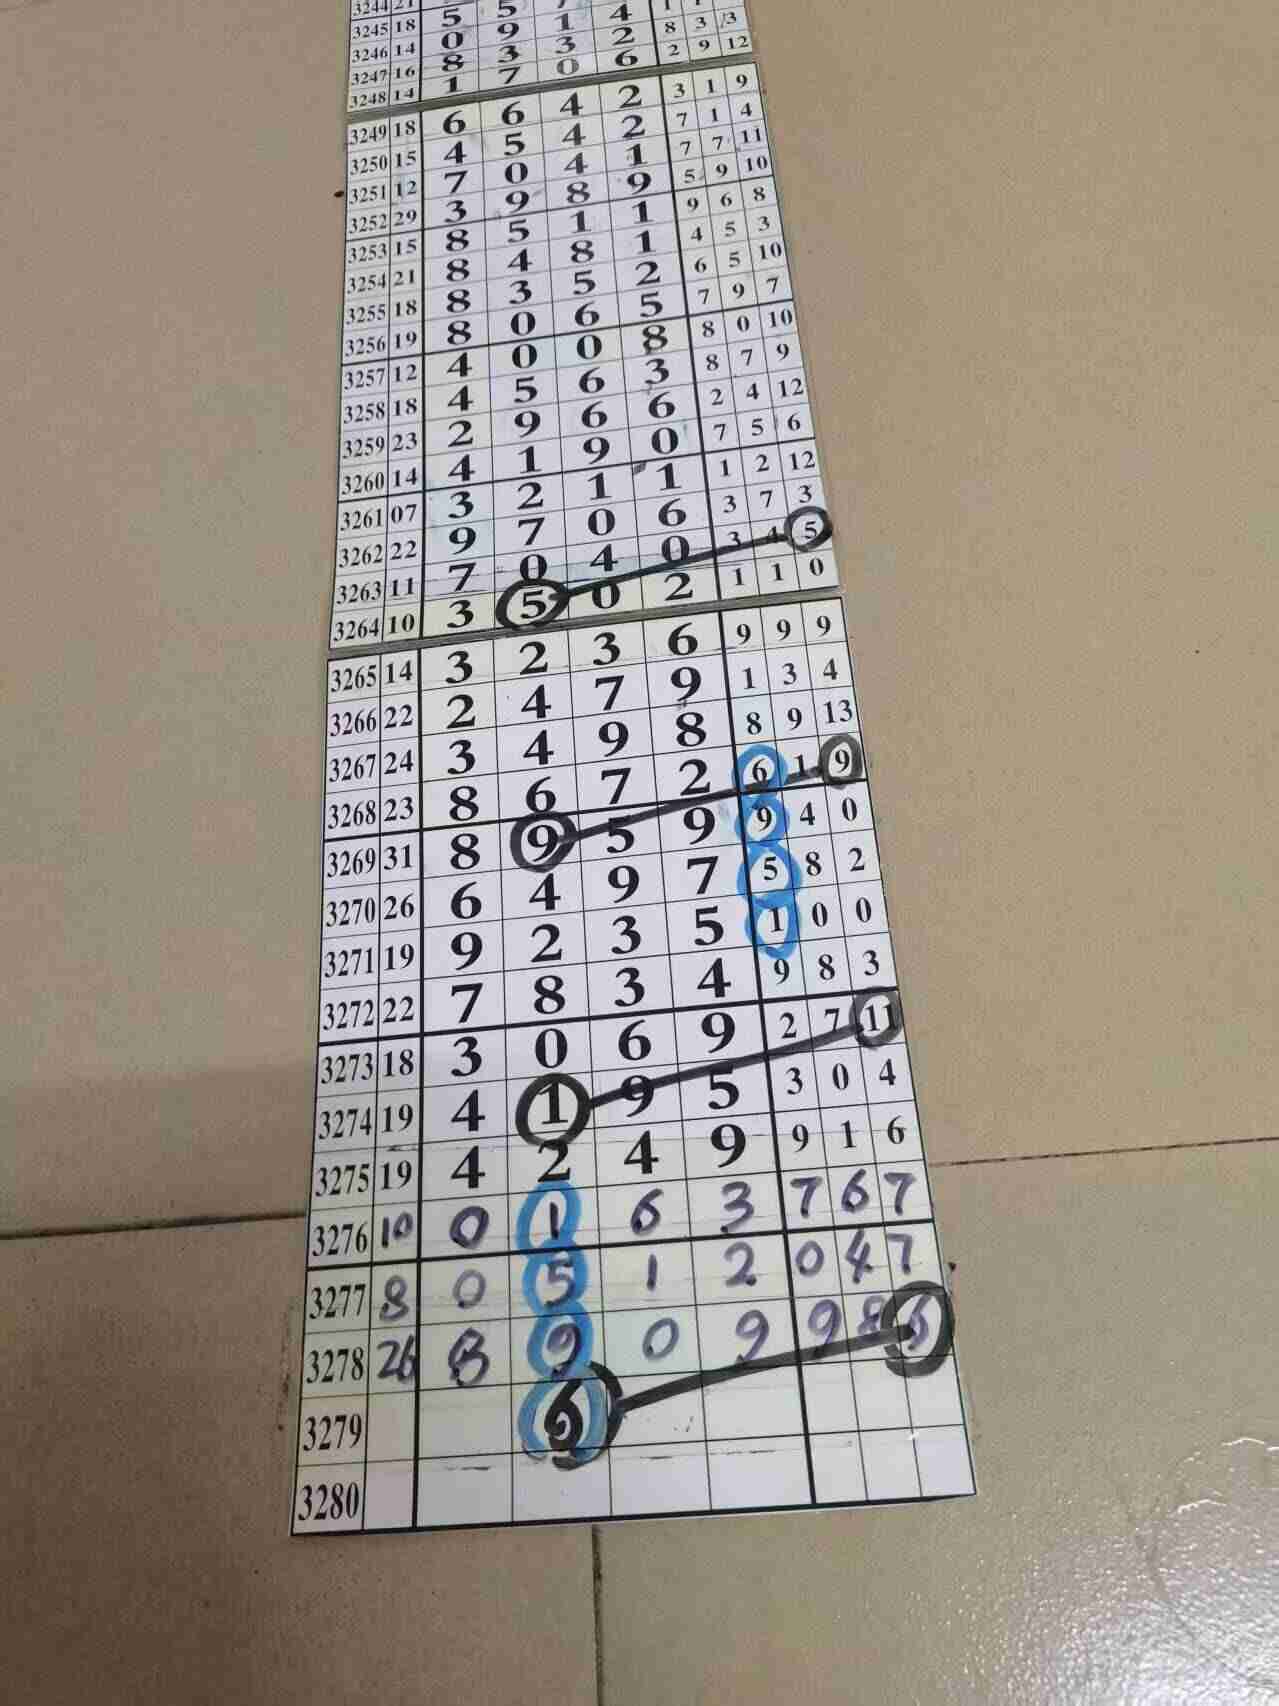 3244 21 5 5 7
3245 18 5 5 1 4 1 1
3246 14 0 9 1 4 8 3 /3
3247 16 8 3 3 2 2 9 12
3248 14 1 7 0 6
3249 18 6 6 4 2 3 1 9
3250 15 4 5 4 2 7 1 4
3251 12 7 0 4 1 7 7 11
3252 29 3 9 8 9 5 9 10
3253 15 8 5 1 1 9 6 8
3254 21 8 4 8 1 4 5 3
3255 18 8 3 5 2 6 5 10
3256 19 8 0 6 5 7 9 7
3257 12 4 0 0 8 8 0 10
3258 18 4 5 6 3 8 7 9
3259 23 2 9 6 6 2 4 12
3260 14 4 1 9 0 7 5 6
3261 07 3 2 1 1 1 2 12
3262 22 9 7 0 6 3 7 3
3263 11 7 0 4 0 3 4 5
3264 10 3 5 0 2 1 1 0
3265 14 3 2 3 6 9 9 9
3266 22 2 4 7 9 1 3 4
3267 24 3 4 9 8 8 9 13
3268 23 8 6 7 2 6 1 9
3269 31 8 9 5 9 9 4 0
3270 26 6 4 9 7 5 8 2
3271 19 9 2 3 5 1 0 0
3272 22 7 8 3 4 9 8 3
3273 18 3 0 6 9 2 7 11
3274 19 4 1 9 5 3 0 4
3275 19 4 2 4 9 9 1 6
3276 10 0 1 6 3 7 6 7
3277 8 0 5 1 2 0 4 7
3278 26 8 9 0 9 9 8 6
3279 6
3280